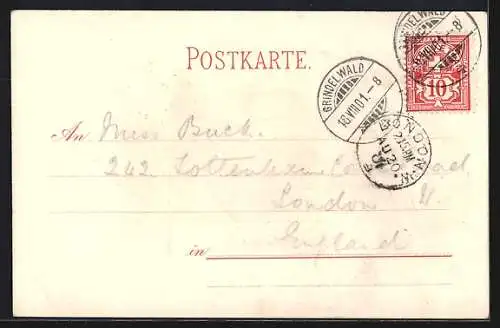 POSTKARTE.
GRINDELWALD
18.VIII.01.-8
GRINDELWALD
8
10
LONDON.W.
AU 20
An Miss Buck.
242 Tottenham Court Road,
London W.
in England